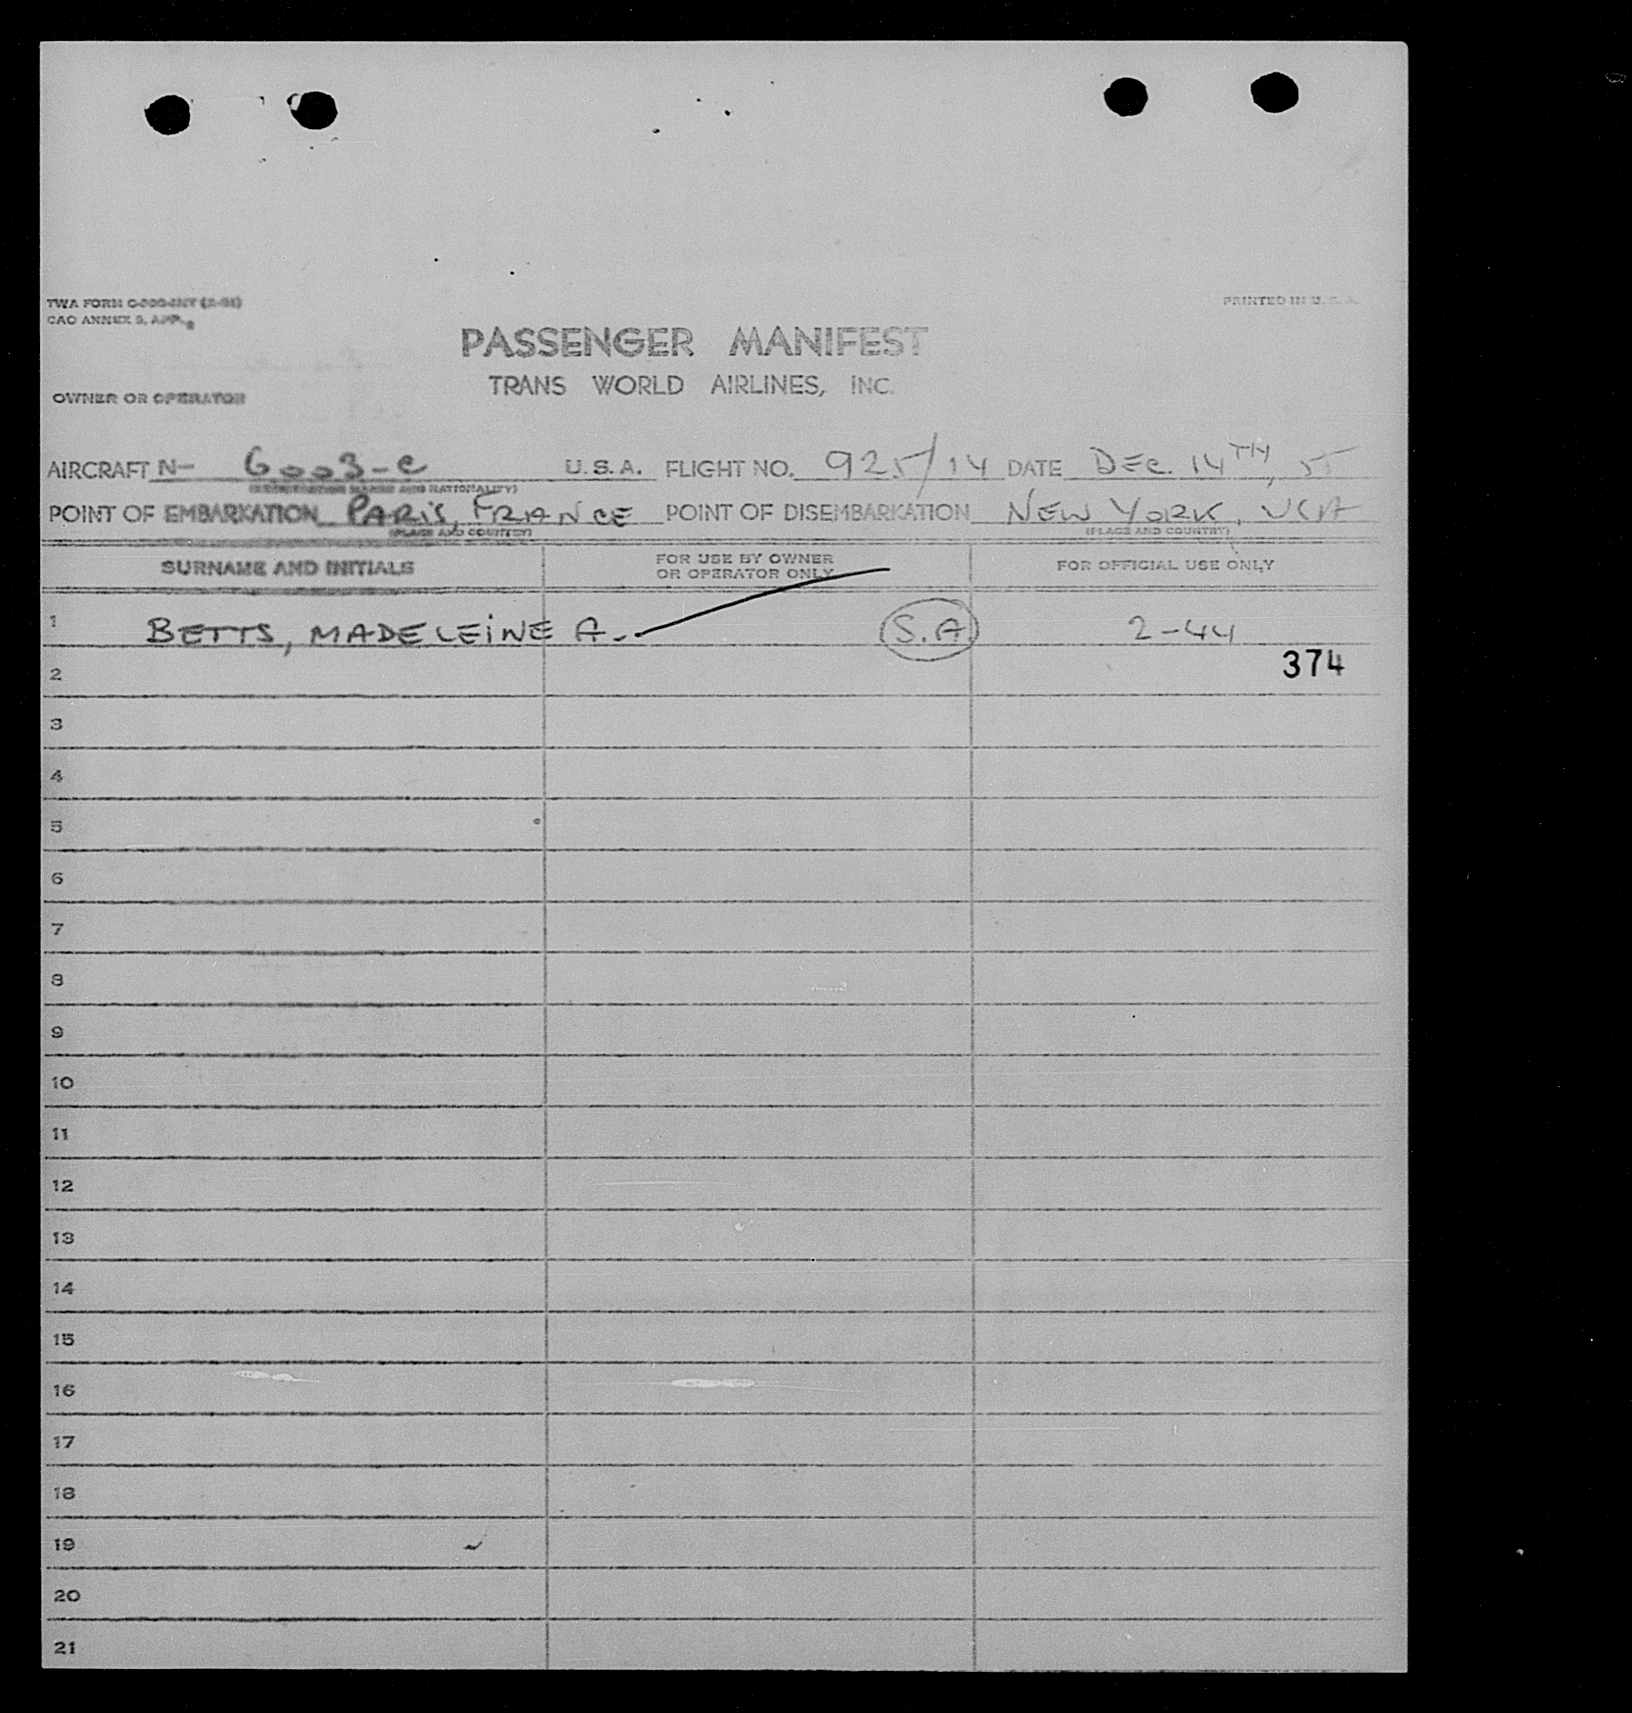 PRINTED IN U. S. A.
TWA FORM
ICAO ANNEX 9, APP.
PASSENGER MANIFEST
TRANS WORLD AIRLINES, INC.
OWNER OR OPERATOR
AIRCRAFT N- 6003-C U.S.A. FLIGHT NO. 925/14 DATE DEC. 14TH, 55
(REGISTRATION MARKS AND NATIONALITY)
POINT OF EMBARKATION PARIS, FRANCE POINT OF DISEMBARKATION NEW YORK, USA
(PLACE AND COUNTRY) (PLACE AND COUNTRY)
SURNAME AND INITIALS FOR USE BY OWNER OR OPERATOR ONLY FOR OFFICIAL USE ONLY
1 BETTS, MADELEINE A. S.A. 2-44
2 374
3
4
5
6
7
8
9
10
11
12
13
14
15
16
17
18
19
20
21